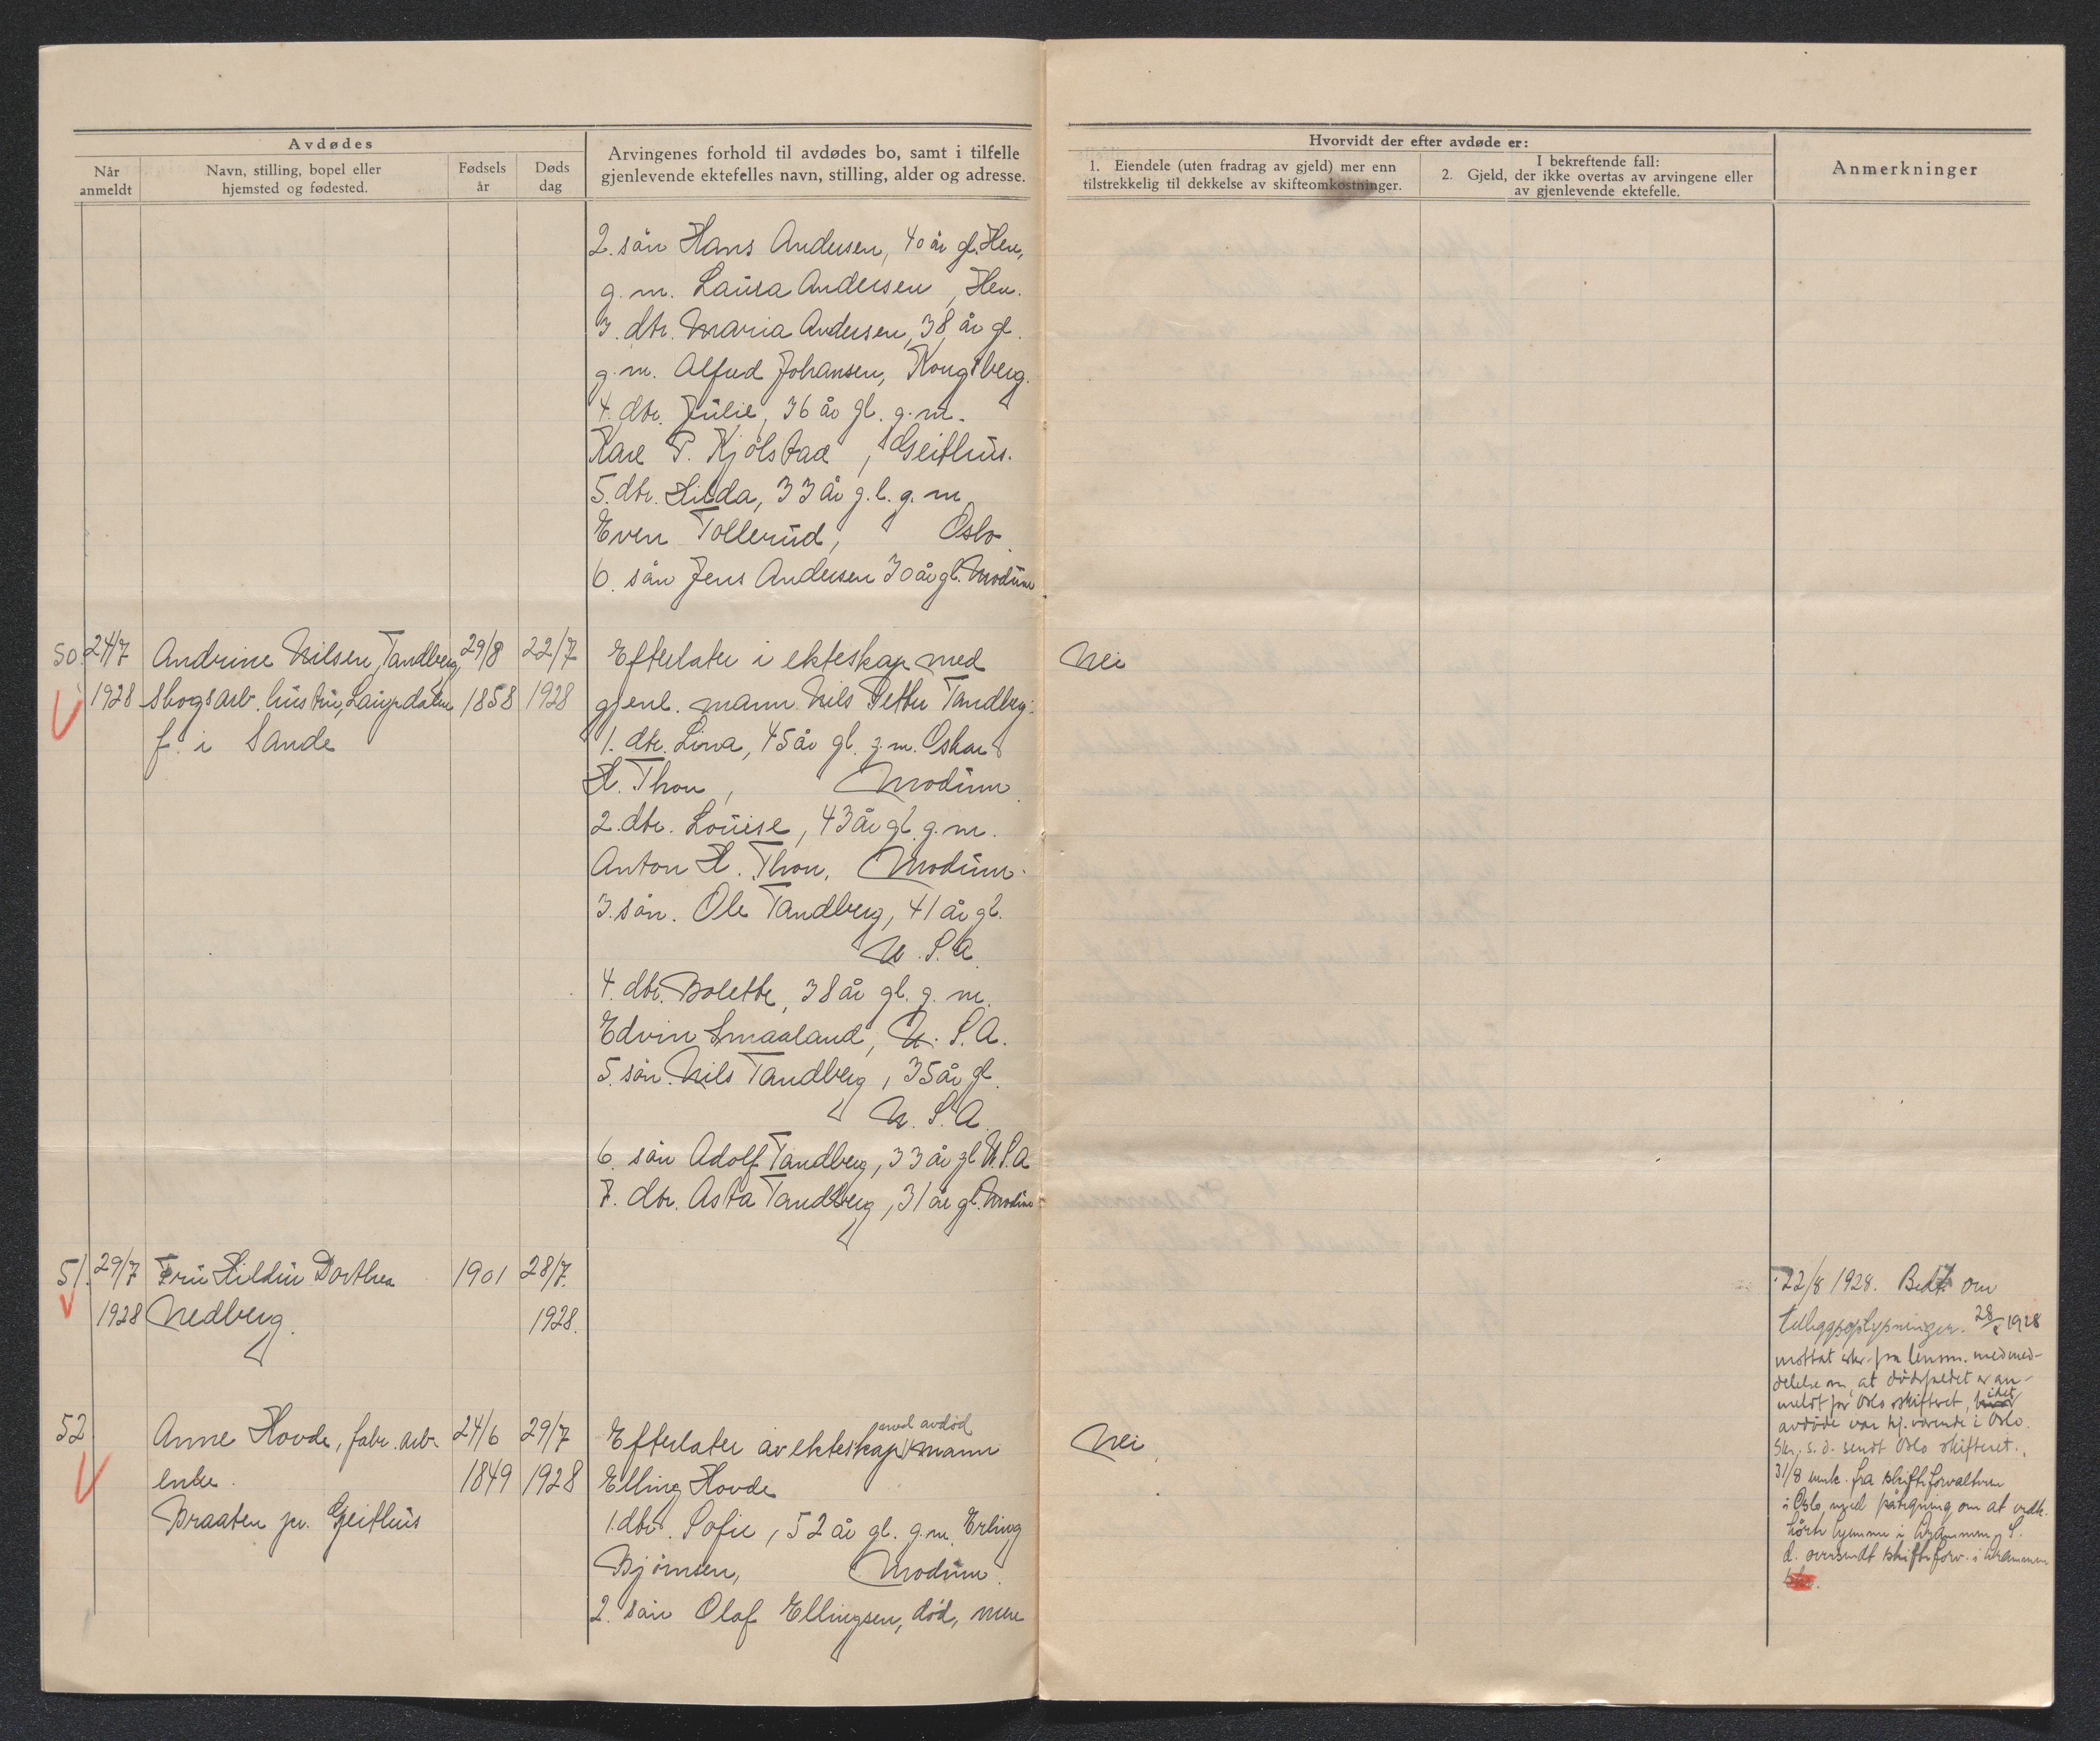 Avdødes
Når anmeldt
Navn, stilling, bopel eller hjemsted og fødested.
Fødsels år
Døds dag
Arvingenes forhold til avdødes bo, samt i tilfelle
gjenlevende ektefelles navn, stilling, alder og adresse.
Hvorvidt der efter avdøde er:
1. Eiendele (uten fradrag av gjeld) mer enn
tilstrekkelig til dekkelse av skifteomkostninger.
I bekreftende fall:
2. Gjeld, der ikke overtas av arvingene eller
av gjenlevende ektefelle.
Anmerkninger
2. sån Hans Andersen, 40 år gl. Hen,
g. m. Laura Andersen, Hen.
3. dtr. Maria Andersen, 38 år gl.
g. m. Alfred Johansen, Kongsberg.
4. dtr. Julie, 36 år gl. g. m.
Karl P. Kjølstad, Geithus.
5. dtr. Hilda, 33 år g.l. g. m
Even Tollerud, Oslo.
6. sån Jens Andersen 30 år gl. Modum
50. 24/7 Andrine Nilsen Tandberg, 29/8 22/7 Efterlater i ekteskap med Nei
1928 skogsarb. hustru, 1858 1928 gjenl. mann Nils Petter Tandberg:
f. i Sande 1. dtr. Lina, 45 år gl. g. m. Oskar
H. Thon, Modum.
2. dtr. Louise, 43 år gl. g. m.
Anton H. Thon, Modum.
3. sån. Ole Tandberg, 41 år gl.
U. S. A.
4. dtr. Bolette, 38 år gl. g. m.
Edvin Smaaland, U. S. A.
5. sån. Nils Tandberg, 35 år gl.
U. S. A.
6. sån Adolf Tandberg, 33 år gl U.S.A
7. dtr. Asta Tandberg, 31 år gl. Modum
51. 29/7 Fru Hildur Dorthea 1901 28/7.
1928 Nedberg. 1928.
22/8 1928. Bedt om
tilleggsoplysninger. 28/8 1928
mottat skr. fra lensm. med med-
delelse om, at dødsfaldet er an-
meldt for Oslo skifteret, idet
avdøde var hj.vørende i Oslo.
Skr. s. d. sendt Oslo skifteret.
31/8 fra skifteforvalteren
i Oslo med påtegning om at vedk.
hørte hjemme i Drammen. S.
d. oversendt skifteforv. i Drammen
52 Anne Hovde, fabr. arb. 24/6 29/7 Efterlater av ekteskap med avdød mann Nei
enke. 1849 1928 Elling Hovde
Braaten pr. Geithus 1. dtr. Sofie, 52 år gl. g. m. Erling
Bjørnsen, Modum.
2. sån Olaf Ellingsen, død, men